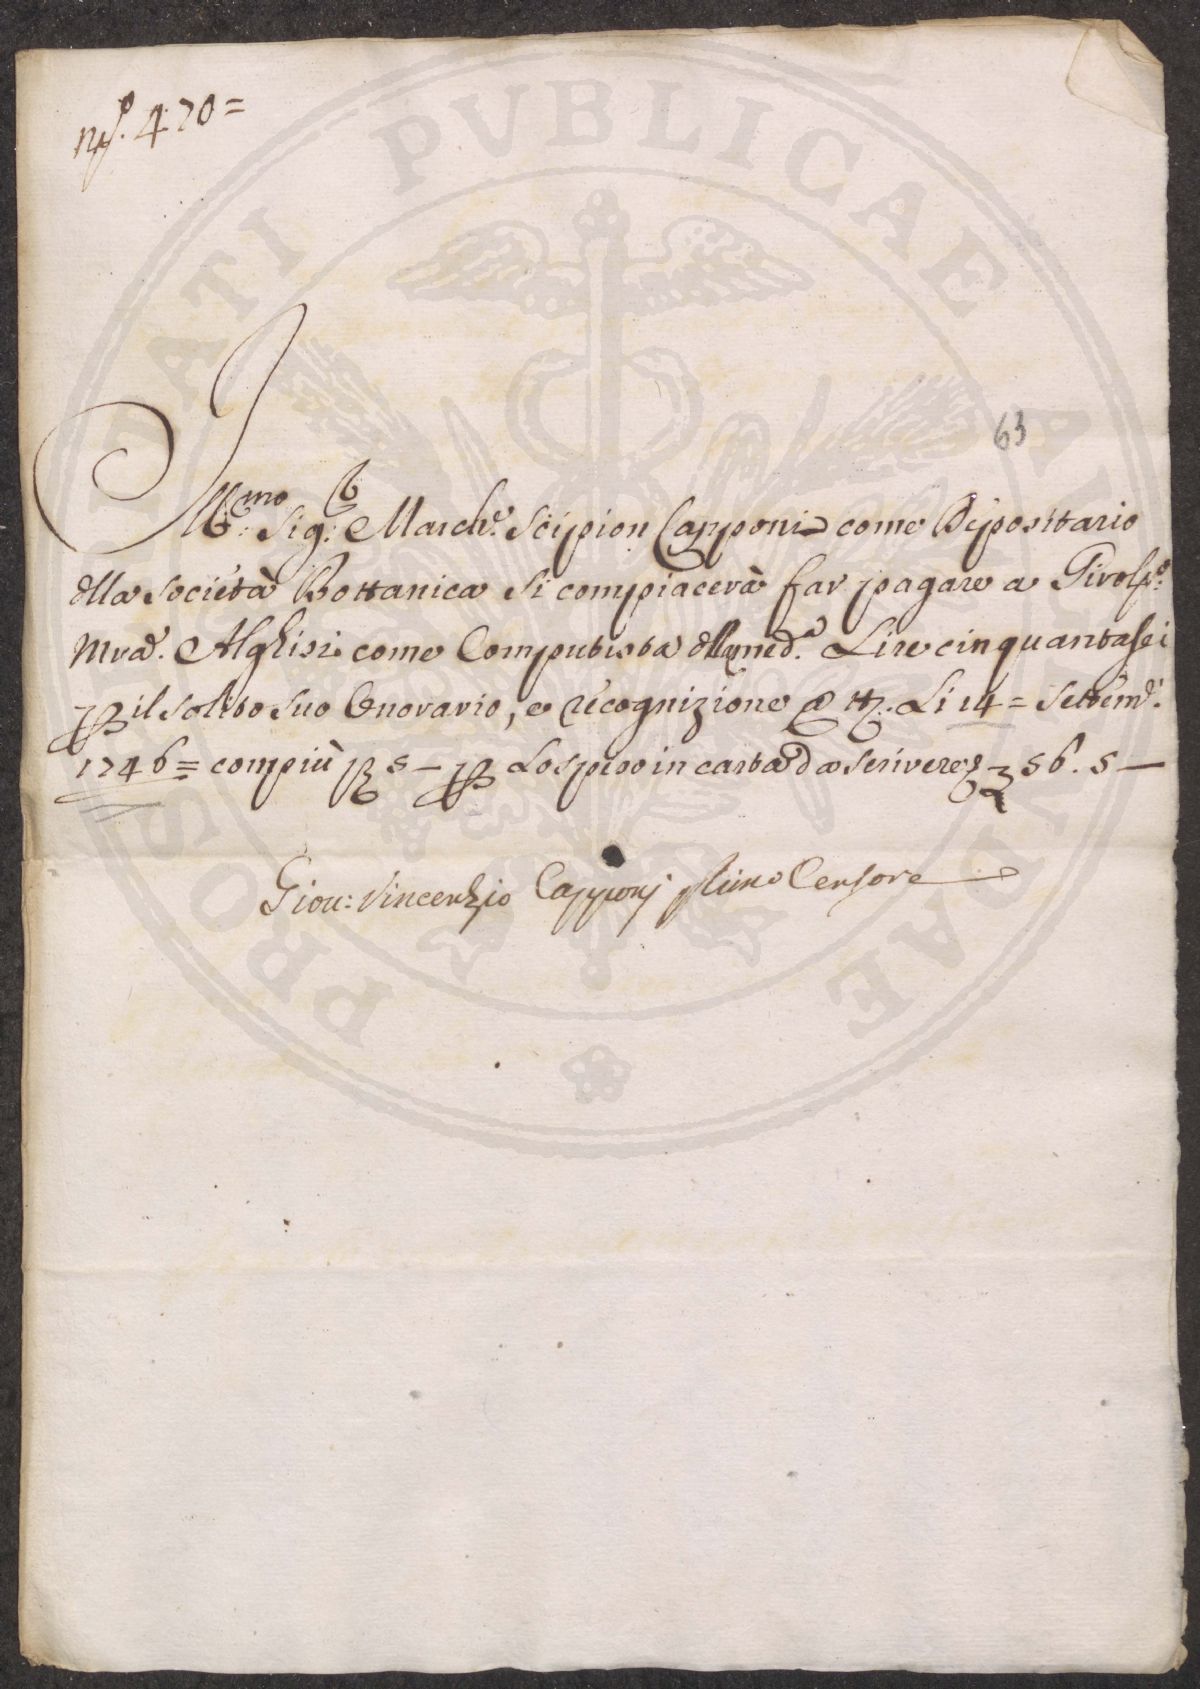 nº. 470=
63
Ill:mo Sig:r March:e Scipion Capponi come Dipositario
dlla Società Bottanica si compiacerà far pagare a Girol:mo
Mra. Alghisi come Computista dlla med.a Lire cinquantasei
p il solito suo Onorario, e recognizione a tt. Li 14= Settem.
1746= compiù s— p Lospeso in carta da scrivere 56. s—
Giov: Vincenzio Capponj primo Censore
PROSPERITATI PVBLICAE AVGENDAE